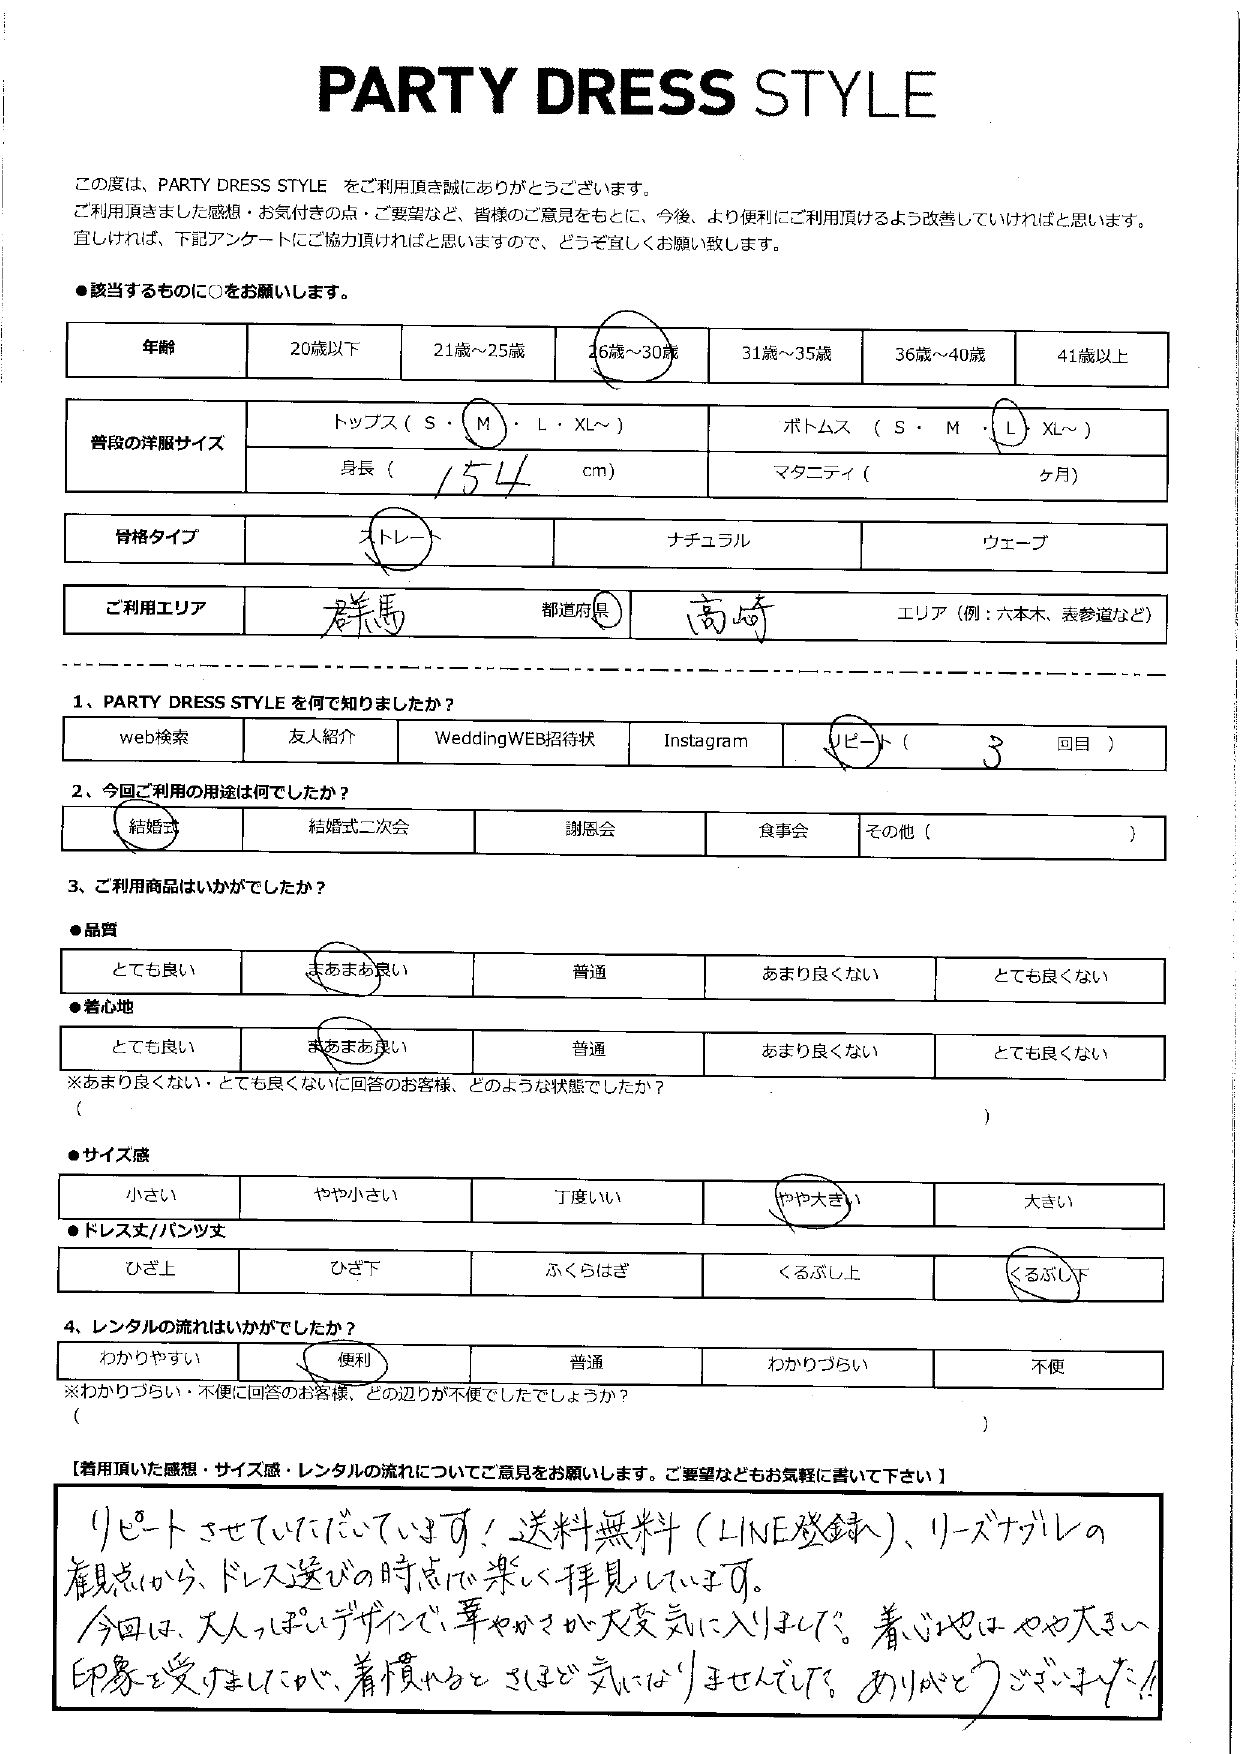 PARTY DRESS STYLE
この度は、PARTY DRESS STYLE をご利用頂き誠にありがとうございます。
ご利用頂きました感想・お気付きの点・ご要望など、皆様のご意見をもとに、今後、より便利にご利用頂けるよう改善していければと思います。
宜しければ、下記アンケートにご協力頂ければと思いますので、どうぞ宜しくお願い致します。
●該当するものに○をお願いします。
年齢 20歳以下 21歳～25歳 26歳～30歳 31歳～35歳 36歳～40歳 41歳以上
普段の洋服サイズ トップス ( S ・ M ・ L ・ XL～ ) ボトムス ( S ・ M ・ L ・ XL～ )
身長 ( 154 cm) マタニティ ( ヶ月)
骨格タイプ ストレート ナチュラル ウェーブ
ご利用エリア 群馬 都道府県 高崎 エリア（例：六本木、表参道など）
1、PARTY DRESS STYLE を何で知りましたか？
web検索 友人紹介 WeddingWEB招待状 Instagram リピート ( 3 回目 )
2、今回ご利用の用途は何でしたか？
結婚式 結婚式二次会 謝恩会 食事会 その他 ( )
3、ご利用商品はいかがでしたか？
●品質
とても良い まあまあ良い 普通 あまり良くない とても良くない
●着心地
とても良い まあまあ良い 普通 あまり良くない とても良くない
※あまり良くない・とても良くないに回答のお客様、どのような状態でしたか？
( )
●サイズ感
小さい やや小さい 丁度いい やや大きい 大きい
●ドレス丈/パンツ丈
ひざ上 ひざ下 ふくらはぎ くるぶし上 くるぶし下
4、レンタルの流れはいかがでしたか？
わかりやすい 便利 普通 わかりづらい 不便
※わかりづらい・不便に回答のお客様、どの辺りが不便でしたでしょうか？
( )
【着用頂いた感想・サイズ感・レンタルの流れについてご意見をお願いします。ご要望などもお気軽に書いて下さい 】
リピートさせていただいています！送料無料（LINE登録へ）、リーズナブルの
観点から、ドレス選びの時点で楽しく拝見しています。
今回は、大人っぽいデザインで、華やかさが大変気に入りました。着心地はやや大きい
印象を受けましたが、着慣れるとさほど気になりませんでした。ありがとうございました!!